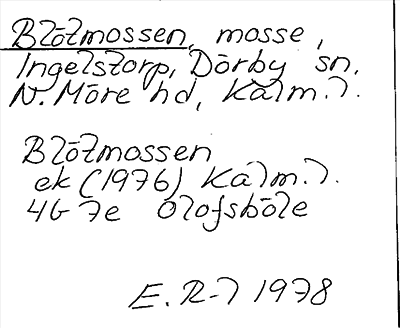 Blötmossen, mosse,
Ingelstorp, Dörby sn,
N. Möre hd, Kalm. l.
Blötmossen
ek (1976) Kalm. l.
4G 7e Olofsböle
E. R-l 1978